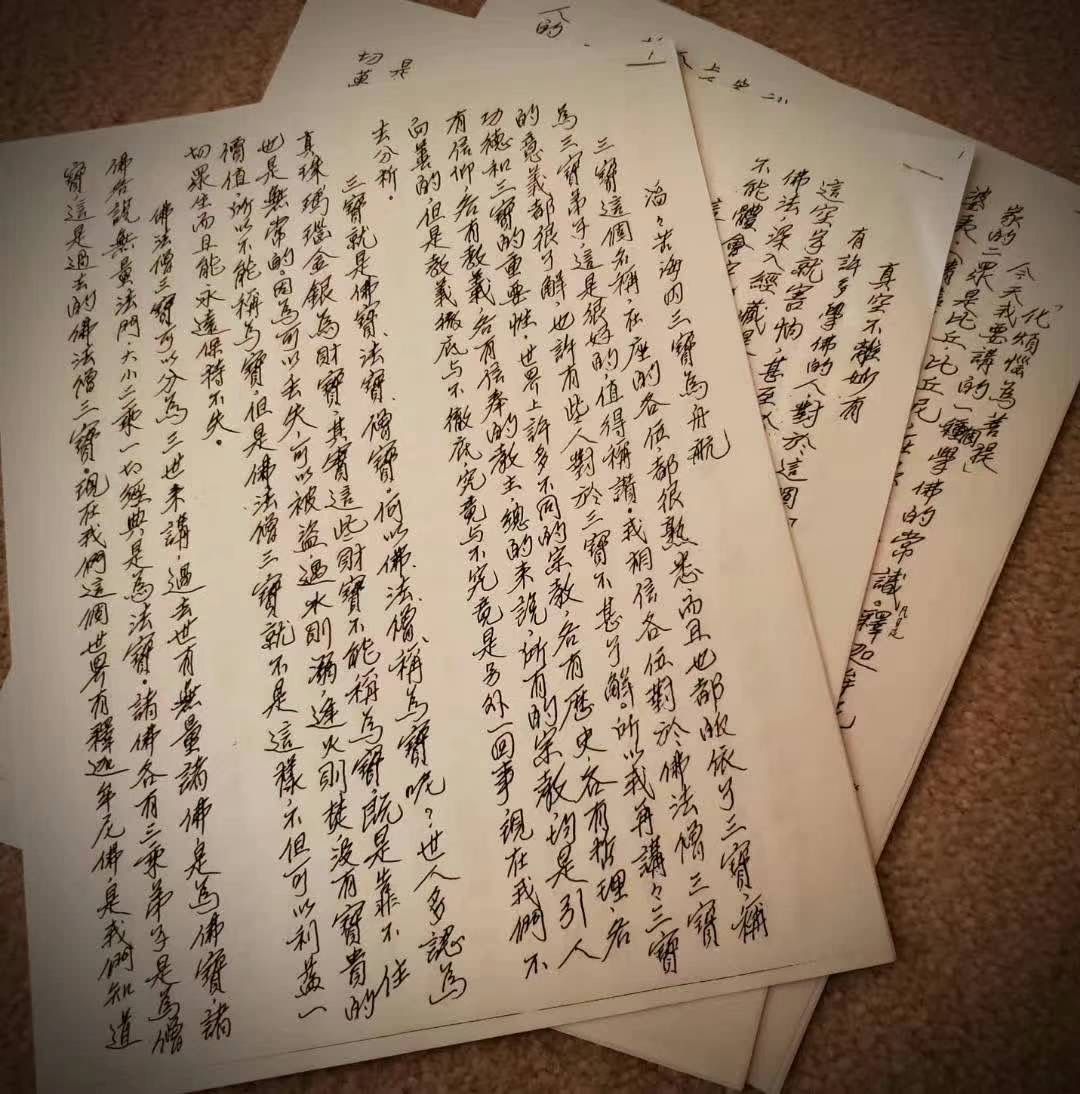 滔々苦海內三寶為舟航
三寶這個名稱、在座的各位、都很熟悉、而且也都皈依了三寶、稱
為三寶弟子、這是很好的、值得稱讚。我相信各位對於佛法僧三寶
的意義都很了解、也許有些人對於三寶不甚了解。所以我再講々三寶
功德和三寶的重要性。世界上許多不同的宗教、各有歷史、各有哲理、各
有信仰、各有教義、各有信奉的教主、總的來說、所有的宗教均是引人
向善的、但是教義徹底与不徹底、究竟与不究竟是另外一回事、現在我們不
去分析。
三寶就是佛寶、法寶、僧寶。何以佛、法、僧、稱為寶呢？世人多認為
真珠、瑪瑙、金銀、為財寶、其實這些財寶不能稱為寶、既是靠不住
也是無常的。因為可以去失、可以被盜、遇水則溺、逢火則焚、沒有寶貴的
價值、所以不能稱為寶、但是佛法僧三寶就不是這樣、不但可以利益一
切眾生、而且能永遠保持不失。
佛法僧三寶可以分為三世來講、過去世有無量諸佛、是為佛寶、諸
佛各說無量法門、大小三乘一切經典、是為法寶。諸佛各有三乘弟子、是為僧
寶、這是過去的佛法僧三寶。現在我們這個世界有釋迦牟尼佛、是我們知道
真空不離妙有
有許多學佛的人、對於這個
這空字就害怕、甚至
佛法、深入經藏
不能體會
「化煩惱為菩提」
今天我要講的一種學佛的常識。釋迦牟尼
家的二眾是比丘比丘尼